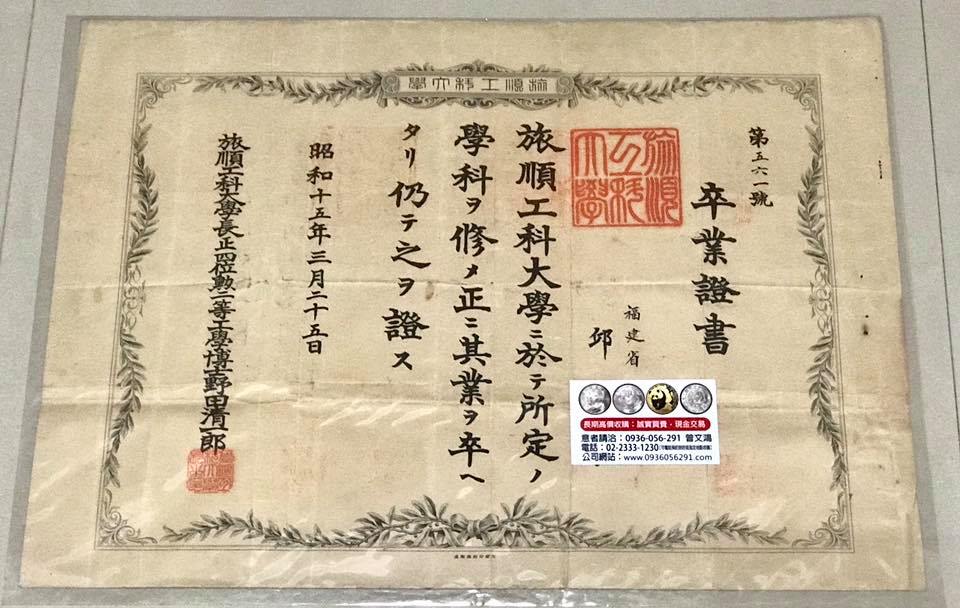 旅順工科大學
第五六一號
卒業證書
福建省
邱
旅順工科大學
旅順工科大學ニ於テ所定ノ
學科ヲ修メ正ニ其業ヲ卒ヘ
タリ仍テ之ヲ證ス
昭和十五年三月二十五日
旅順工科大學長正四位勲二等工學博士野田清一郎
長期高價收購：誠實買賣・現金交易
意者請洽：0936-056-291 曾文鴻
電話：02-2333-1230
公司網站：www.0936056291.com